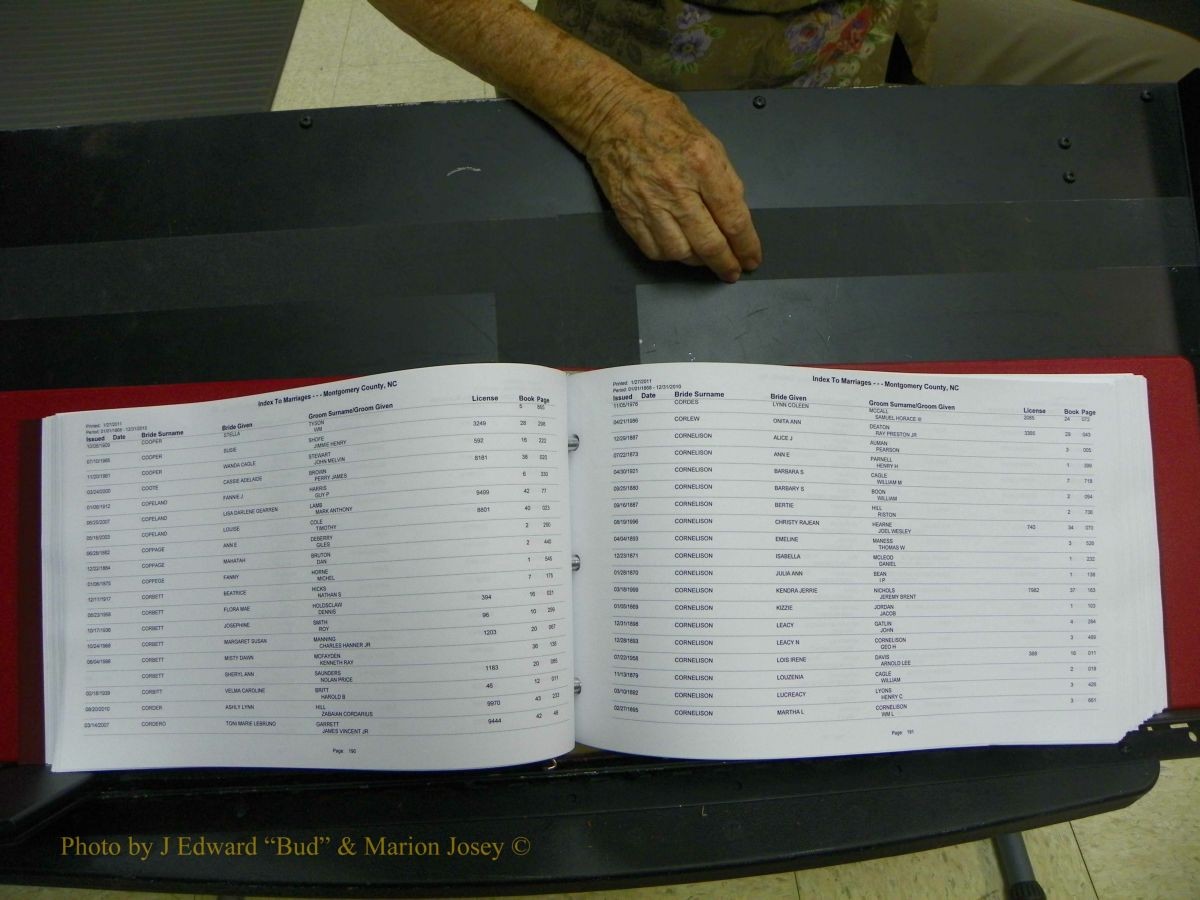 Printed: 1/27/2011
Period: 01/01/1868 - 12/31/2010
Index To Marriages - - - Montgomery County, NC
Issued Date Bride Surname Bride Given Groom Surname/Groom Given License Book Page
COOPER STELLA TYSON 5
WM
COOPER SUSIE SHOFE 3249 28 298
JIMMIE HENRY
COOPER WANDA CAGLE STEWART 592 16 222
JOHN MELVIN
COOTE CASSIE ADELAIDE BROWN 8181 38 020
PERRY JAMES
COPELAND FANNIE J HARRIS 6 330
GUY P
COPELAND LISA DARLENE DEARREN LAMB 9499 42 77
MARK ANTHONY
COPELAND LOUISE COLE 8801 40 023
TIMOTHY
COPPAGE ANN E DEBERRY 2 250
GILES
COPPAGE MAHATAH BRUTON 2 440
DAN
COPPEGE FANNY HORNE 1 545
MICHEL
CORBETT BEATRICE HICKS 7 175
NATHAN S
CORBETT FLORA MAE HOLDSCLAW 394 16 021
DENNIS
CORBETT JOSEPHINE SMITH 96 10 259
ROY
CORBETT MARGARET SUSAN MANNING 1203 20 067
CHARLES HANNER JR
CORBETT MISTY DAWN MCFAYDEN 36 135
KENNETH RAY
CORBETT SHERYL ANN SAUNDERS 1183 20 085
NOLAN PRICE
CORBITT VELMA CAROLINE BRITT 45 12 011
HAROLD B
08/20/2010 CORDER ASHLY LYNN HILL 9970 43 233
ZABAIAN CORDARIUS
03/14/2007 CORDERO TONI MARIE LEBRUNO GARRETT 9444 42 48
JAMES VINCENT JR
Page: 190
Printed: 1/27/2011
Period: 01/01/1868 - 12/31/2010
Index To Marriages - - - Montgomery County, NC
Issued Date Bride Surname Bride Given Groom Surname/Groom Given License Book Page
11/05/1976 CORDES LYNN COLEEN MCCALL 2085 24 073
SAMUEL HORACE III
04/21/1986 CORLEW ONITA ANN DEATON 3386 29 043
RAY PRESTON JR
12/29/1887 CORNELISON ALICE J AUMAN 3 005
PEARSON
07/22/1873 CORNELISON ANN E PARNELL 1 399
HENRY H
04/30/1921 CORNELISON BARBARA S CAGLE 7 718
WILLIAM M
09/25/1880 CORNELISON BARBARY S BOON 2 094
WILLIAM
09/16/1887 CORNELISON BERTIE HILL 2 736
RISTON
08/19/1996 CORNELISON CHRISTY RAJEAN HEARNE 740 34 070
JOEL WESLEY
04/04/1893 CORNELISON EMELINE MANESS 3 520
THOMAS W
12/23/1871 CORNELISON ISABELLA MCLEOD 1 232
DANIEL
01/28/1870 CORNELISON JULIA ANN BEAN 1 138
I P
03/18/1999 CORNELISON KENDRA JERRIE NICHOLS 7982 37 163
JEREMY BRENT
01/05/1869 CORNELISON KIZZIE JORDAN 1 103
JACOB
12/31/1898 CORNELISON LEACY GATLIN 4 284
JOHN
12/28/1893 CORNELISON LEACY N CORNELISON 3 469
GEO H
07/22/1958 CORNELISON LOIS IRENE DAVIS 388 16 011
ARNOLD LEE
11/13/1879 CORNELISON LOUZENIA CAGLE 2 018
WILLIAM
03/10/1892 CORNELISON LUCREACY LYONS 3 426
HENRY C
02/27/1895 CORNELISON MARTHA L CORNELISON 3 661
WM L
Page: 191
Photo by J Edward “Bud” & Marion Josey ©